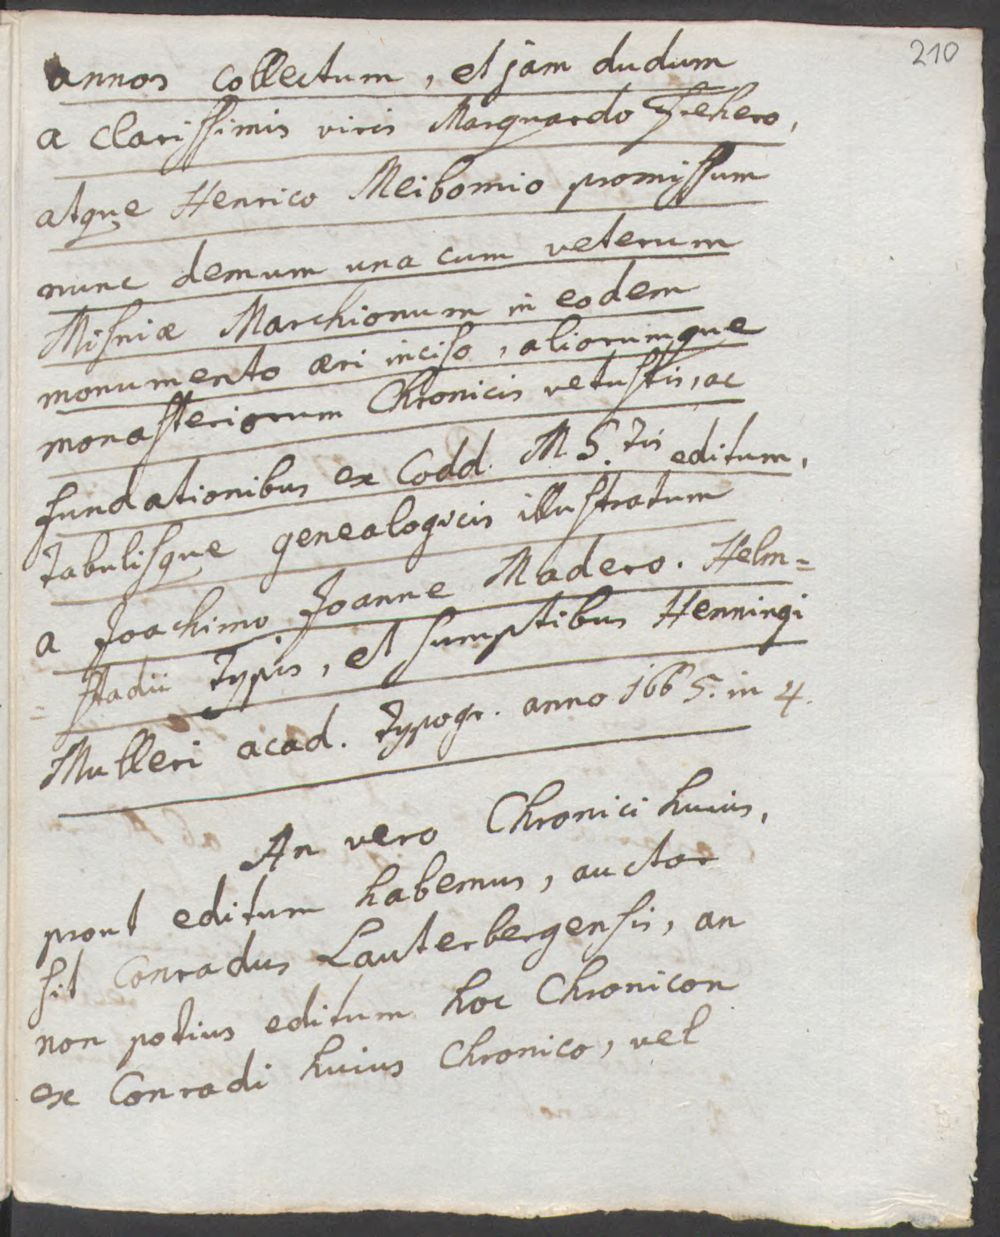 210
annos collectum, et jam dudum
a clarissimis viris Marquardo Frehero,
atque Henrico Meibomio promissum
nunc demum una cum veterum
Misniæ Marchionum in eodem
monumento æri inciso, aliorumque
monasteriorum Chronicis vetustis, ac
fundationibus ex Codd. M S.tis editum,
tabulisque genealogicis illustratum
a Joachimo Joanne Madero. Helm=
=stadii typis, et sumptibus Henningi
Mulleri acad. typogr. anno 1665. in 4.
An vero Chronici huius,
prout editum habemus, auctor
sit Conradus Lauterbergensis, an
non potius editum hoc Chronicon
ex Conradi huius Chronico, vel